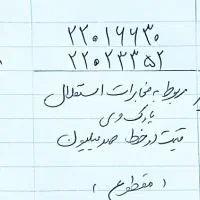 ۲۲۰۱۶۶۳۰
۲۲۰۲۳۳۵۲
مربوط به مخابرات استقلال
پارک وی
قیمت دو خط صد میلیون
(مقطوع)